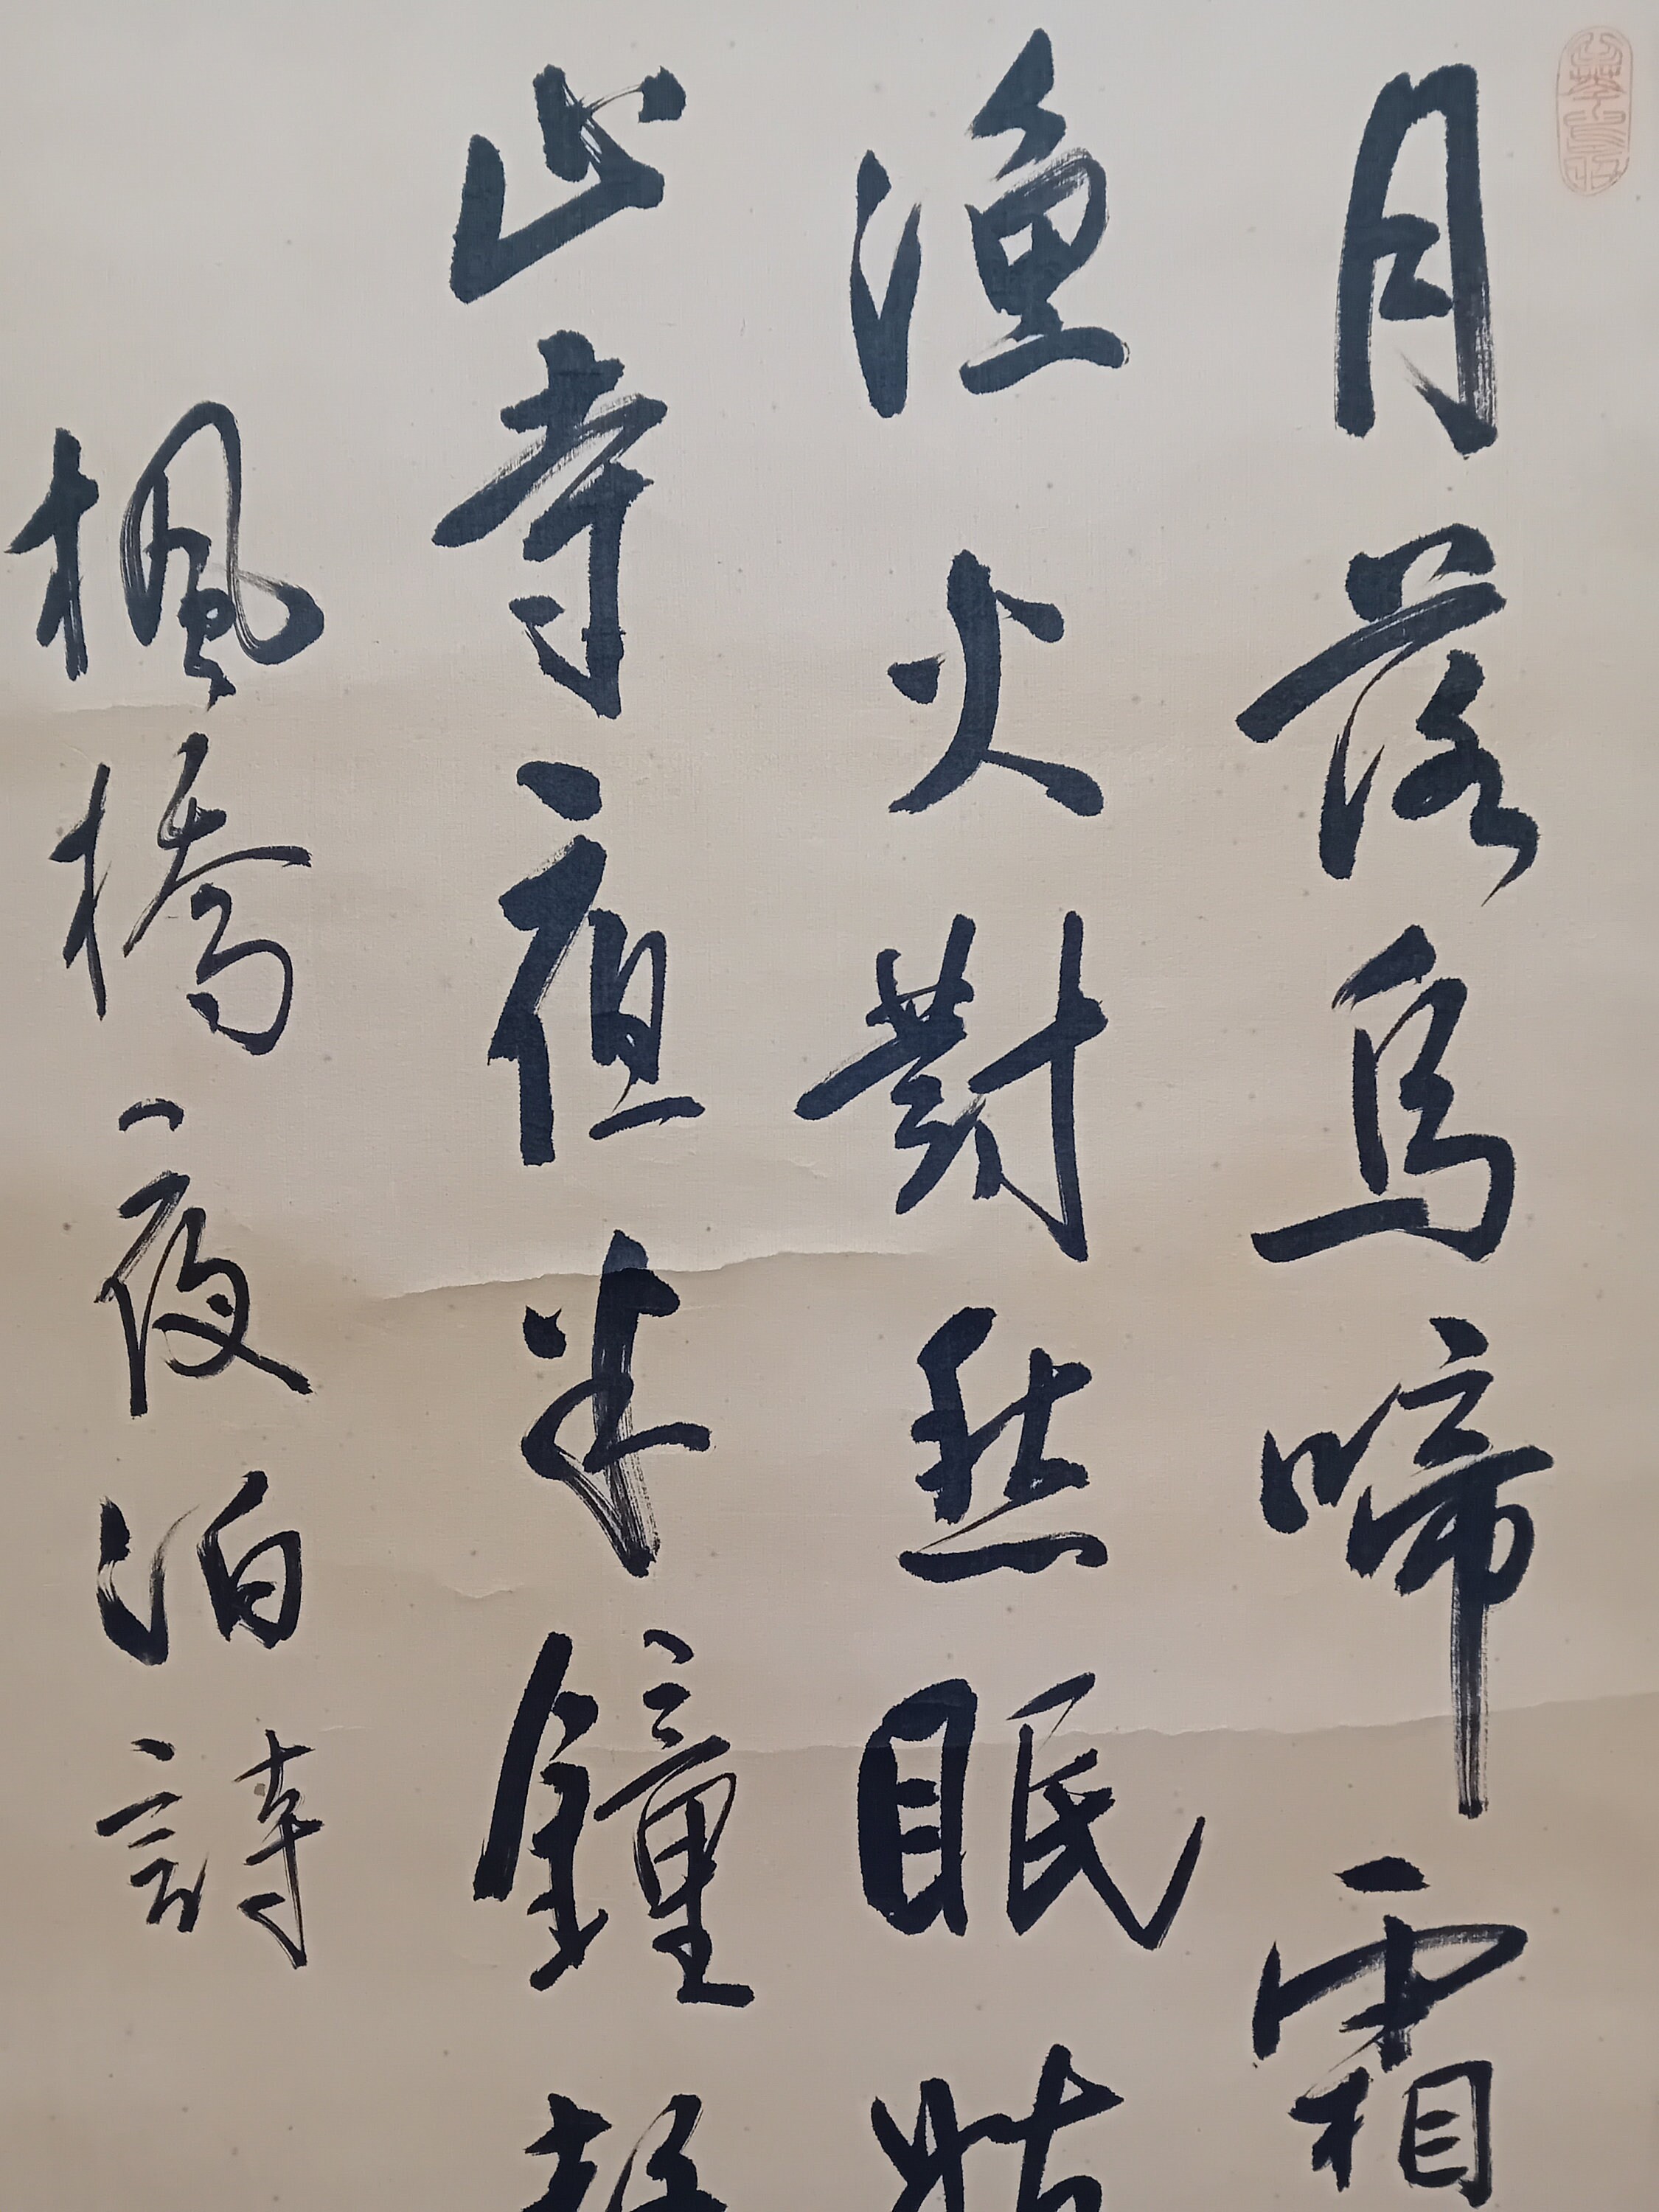 月落烏啼霜
漁火對愁眠姑
山寺夜半鐘聲
楓橋夜泊詩